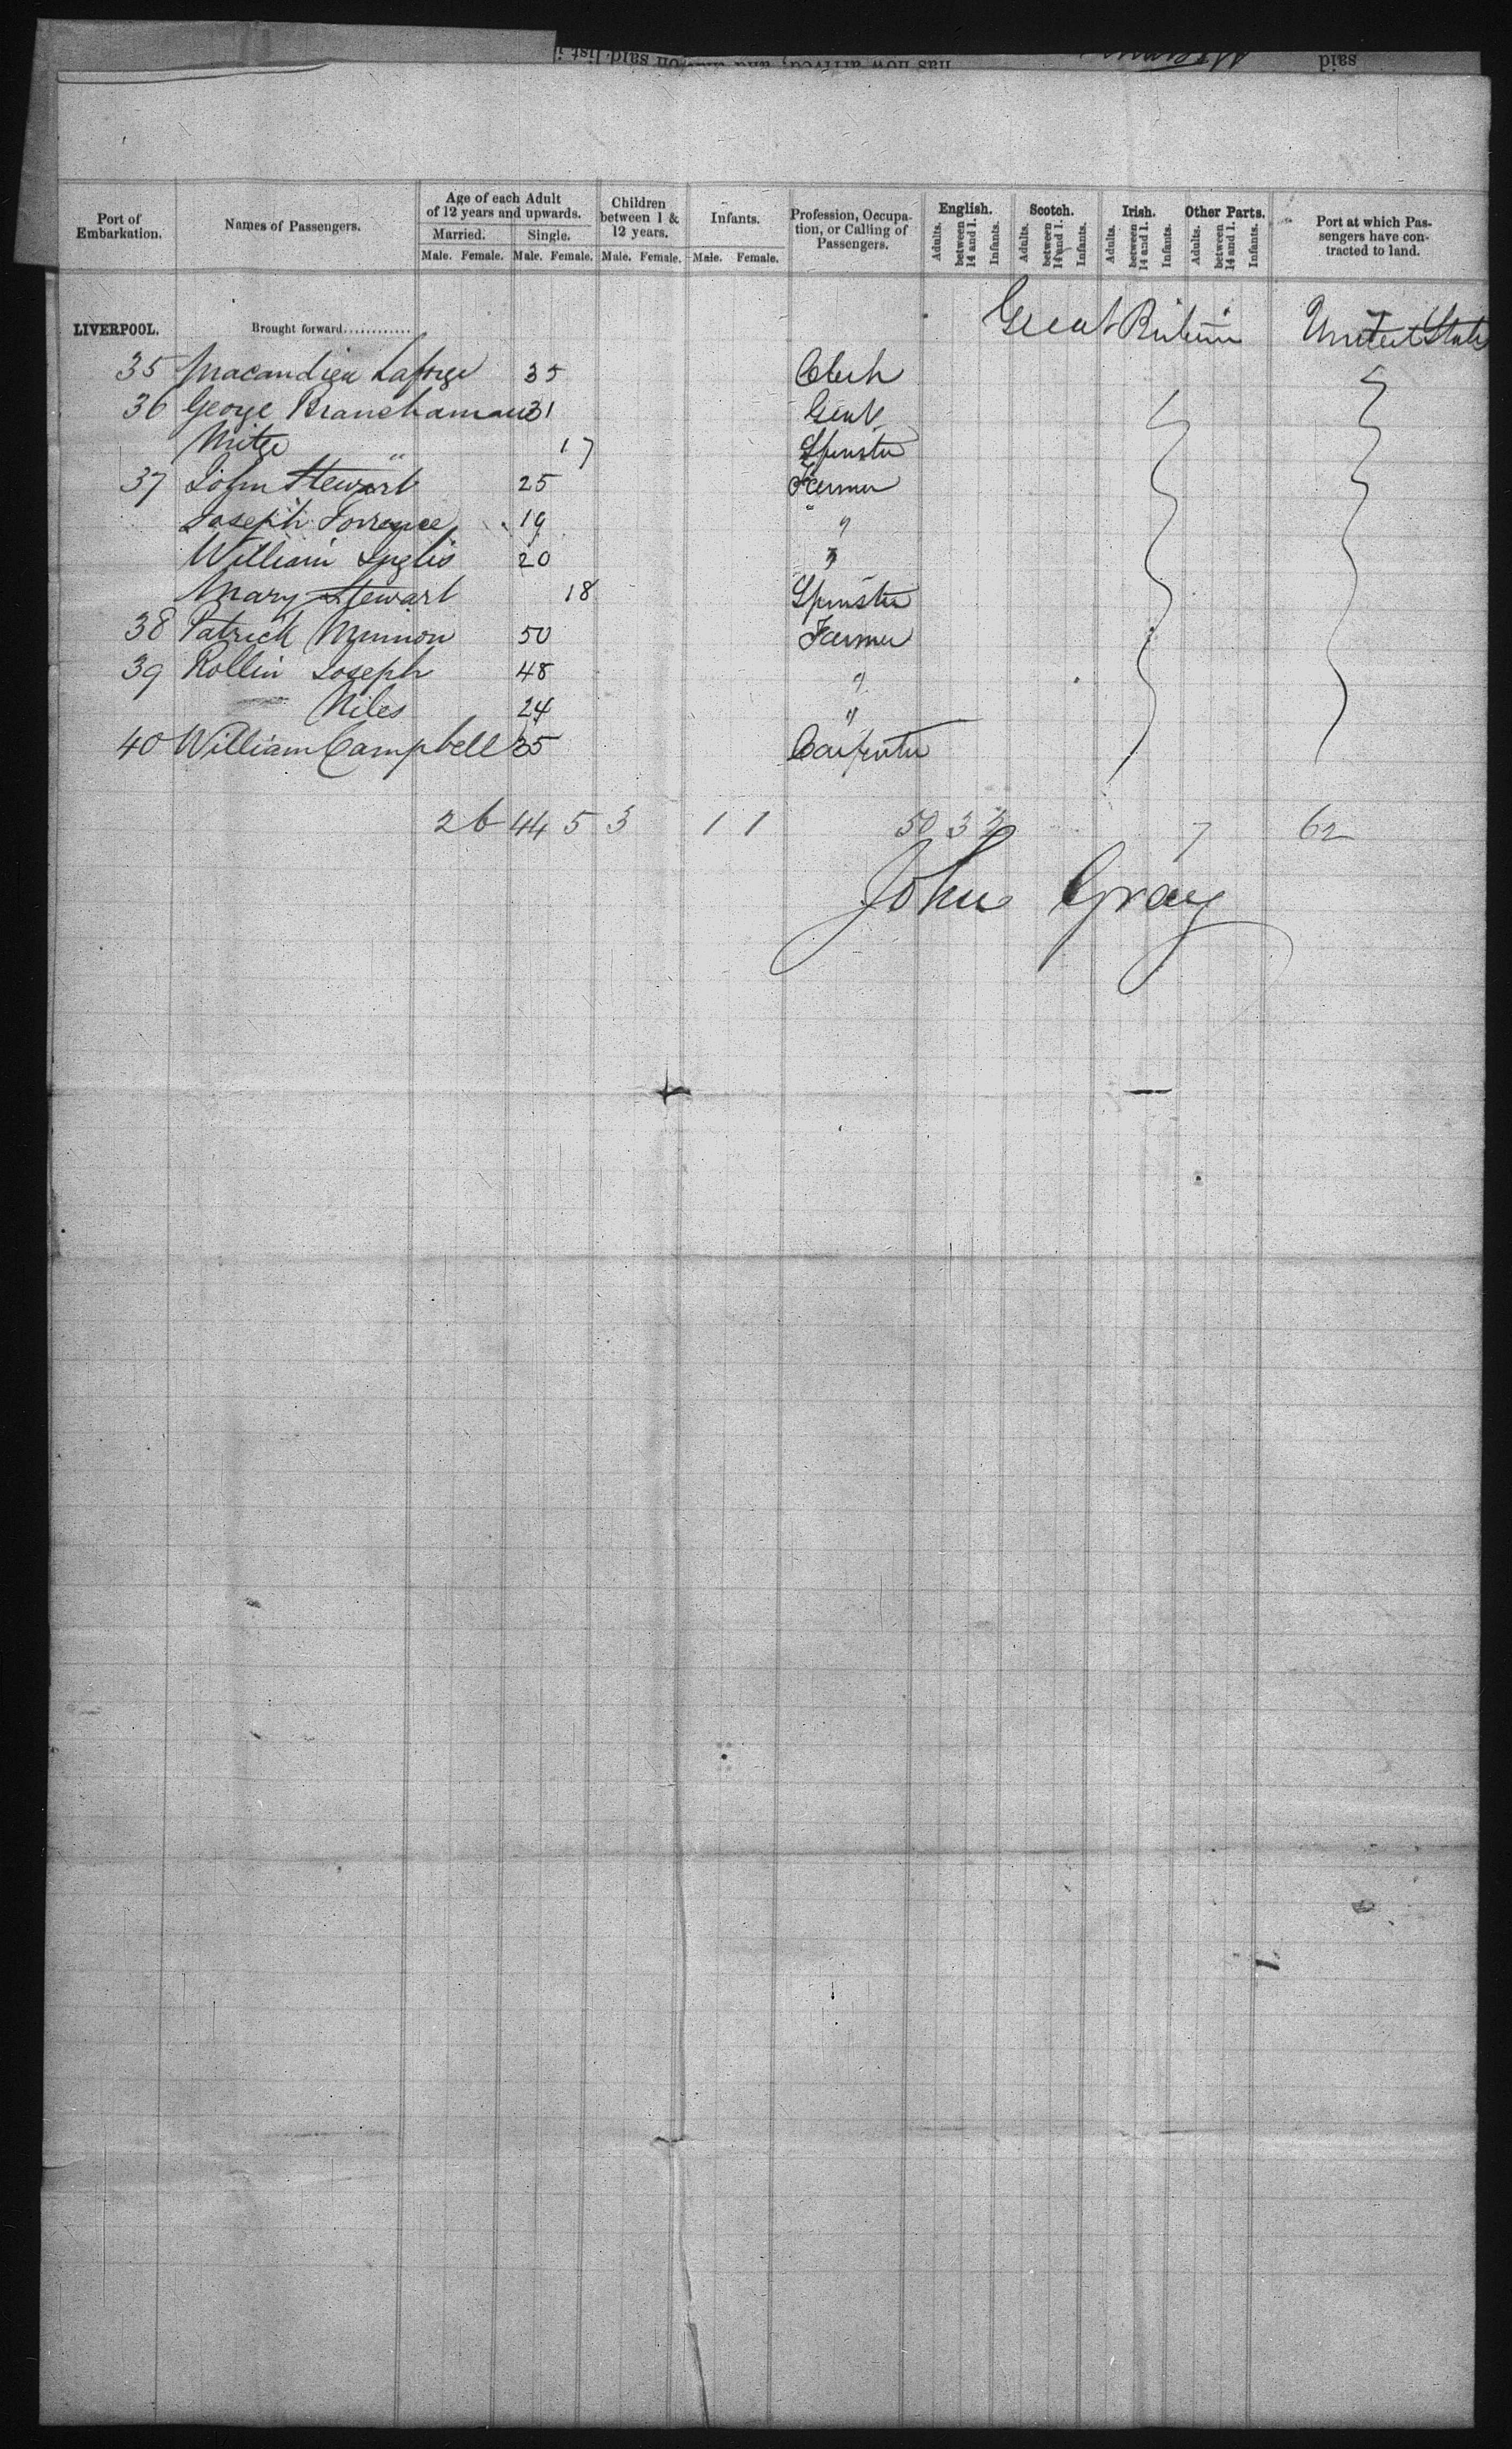 said
has now arrived, and on said list
Port of Embarkation. Names of Passengers. Age of each Adult of 12 years and upwards. Children between 1 & 12 years. Infants. Profession, Occupation, or Calling of Passengers. English. Scotch. Irish. Other Parts. Port at which Passengers have contracted to land.
Married. Single.
Male. Female. Male. Female. Male. Female. Male. Female. Adults. between 14 and 1. Infants. Adults. between 14 and 1. Infants. Adults. between 14 and 1. Infants. Adults. between 14 and 1. Infants.
LIVERPOOL. Brought forward............ Great Britain United States
35 35 Clerk
36 George 31 Gent
17 Spinster
37 John Stewart 25 Farmer
Joseph Torrence 19 "
William Inglis 20 "
Mary Stewart 18 Spinster
38 Patrick 50 Farmer
39 Rollin Joseph 48 "
Niles 24 "
40 William Campbell 35 Carpenter
2 6 44 5 3 1 1 50 3 2 7 62
John Gray